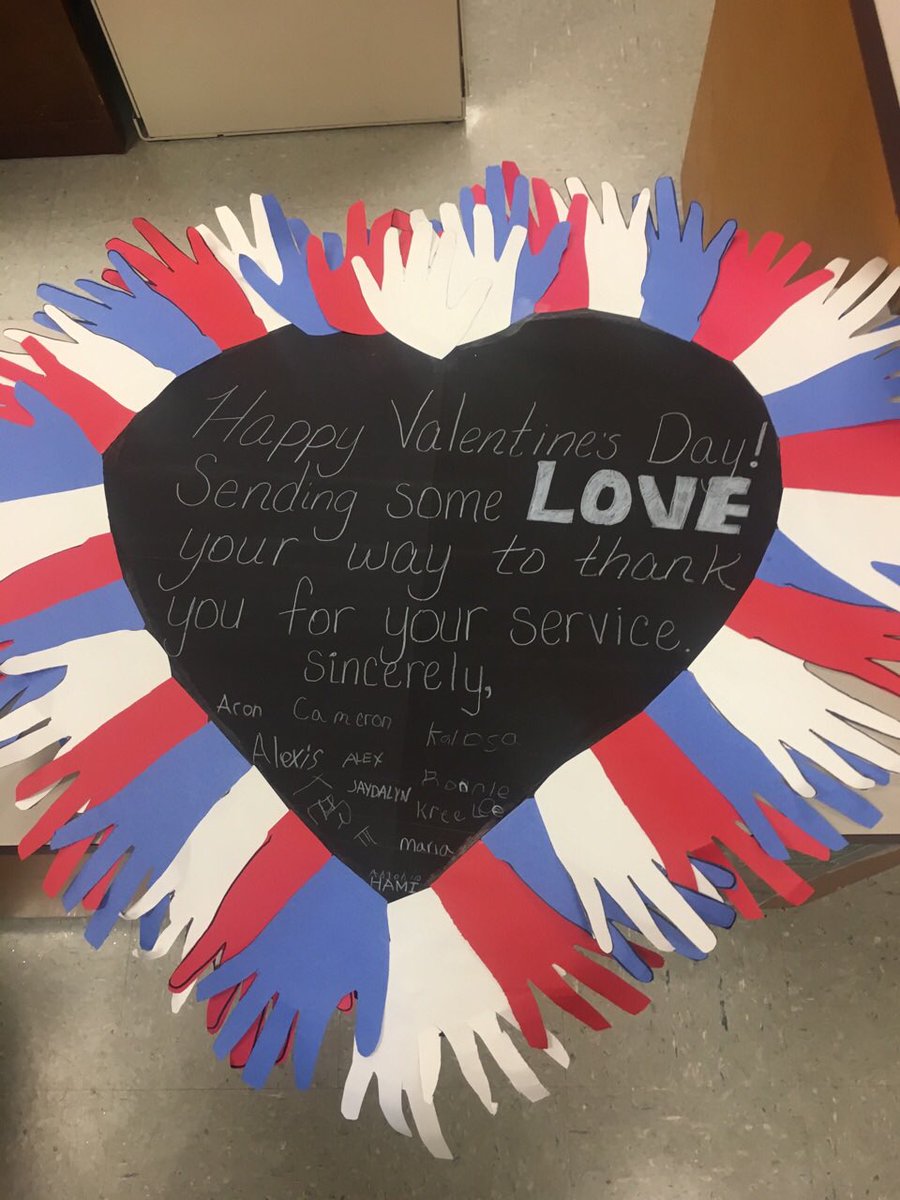 Happy Valentine's Day!
Sending some LOVE
your way to thank
you for your service.
sincerely,
Aron Cameron
Alexis ALEX
JAYDALYN Ronnie
Kree Lee
maria
HAMI